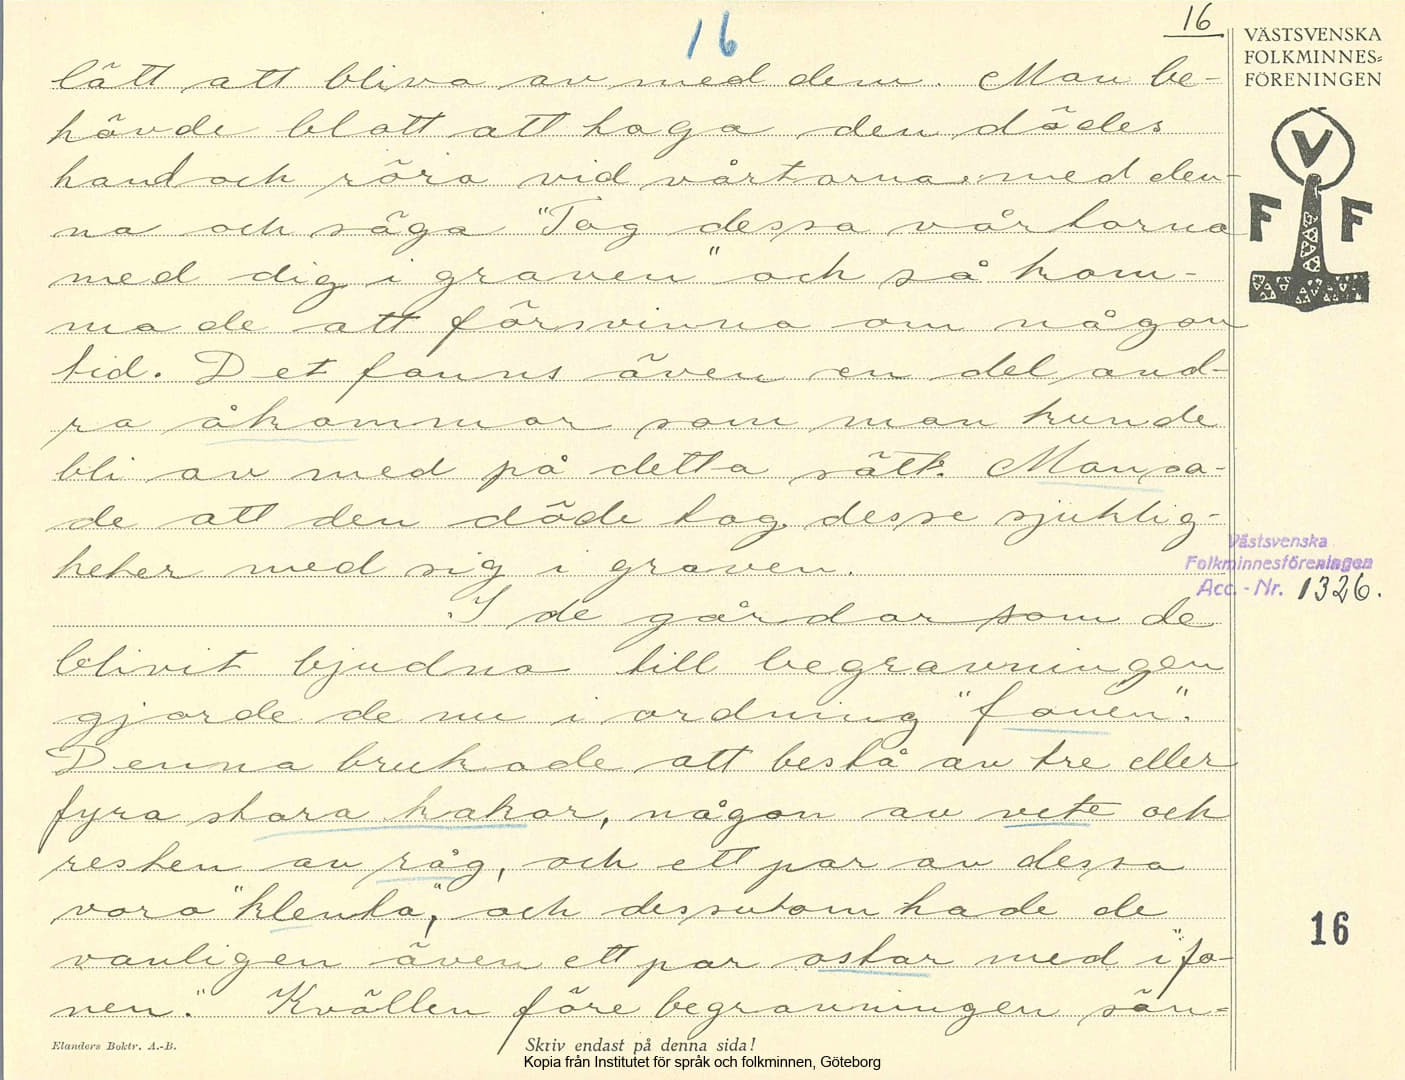 16
16
VÄSTSVENSKA
FOLKMINNES=
FÖRENINGEN
V
F F
lätt att bliva av med dem. Man be-
hövde blott att taga den dödes
hand och röra vid vårtorna med den-
na och säga "Tag dessa vårtorna
med dig i graven" och så kom-
ma de att försvinna om någon
tid. Det fanns även en del and-
ra åkommor som man kunde
bli av med på detta sätt. Man sa-
de att den döde tog desse sjuklig-
heter med sig i graven.
I de gårdar som de
blivit bjudna till begravningen
gjorde de nu i ordning "fonen".
Denna brukade att bestå av tre eller
fyra stora kakor, någon av vete och
resten av råg, och ett par av dessa
voro "klenta", och dessutom hade de
vanligen även ett par ostar med i "fo-
nen." Kvällen före begravningen sän-
Västsvenska
Folkminnesföreningen
Acc.-Nr. 1326.
16
Elanders Boktr. A.-B.
Skriv endast på denna sida!
Kopia från Institutet för språk och folkminnen, Göteborg